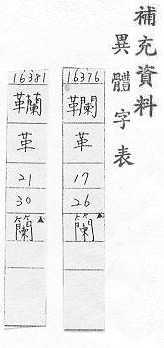 補充資料
異體字表
16376
韊
革
17
26
籣
16381
韊
革
21
30
籣